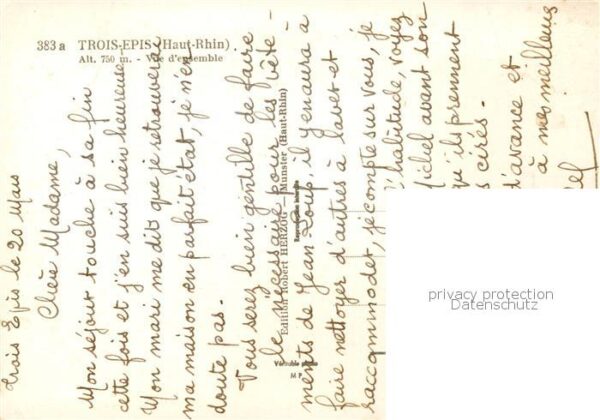 383 a TROIS-EPIS (Haut-Rhin)
Alt. 750 m. - Vue d'ensemble
Trois Epis le 20 Mars
Chère Madame,
Mon séjour touche à sa fin
cette fois et j'en suis bien heureuse
Mon mari me dit que je retrouverai
ma maison en parfait état, je n'en
doute pas.
Vous serez bien gentille de faire
le nécessaire pour les vête-
ments de Jean Loup, il y en aura à
faire nettoyer d'autres à laver et
raccommoder, je compte sur vous, je
l'habitude, voyez
Michel avant son
qu'ils prennent
cirés.
d'avance et
à mes meilleurs
Edition Robert HERZOG — Munster (Haut-Rhin)
Reproduction interdite
Véritable photo
M P
privacy protection
Datenschutz